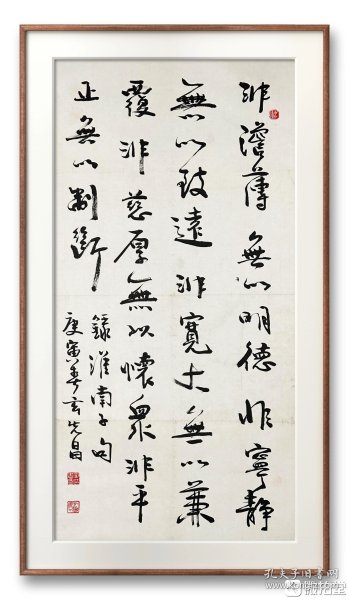 非澹薄無以明德非寧靜
無以致遠非寬大無以兼
覆非慈厚無以懷眾非平
正無以制斷
錄淮南子句
庚寅春玄先昌
孔夫子旧书网